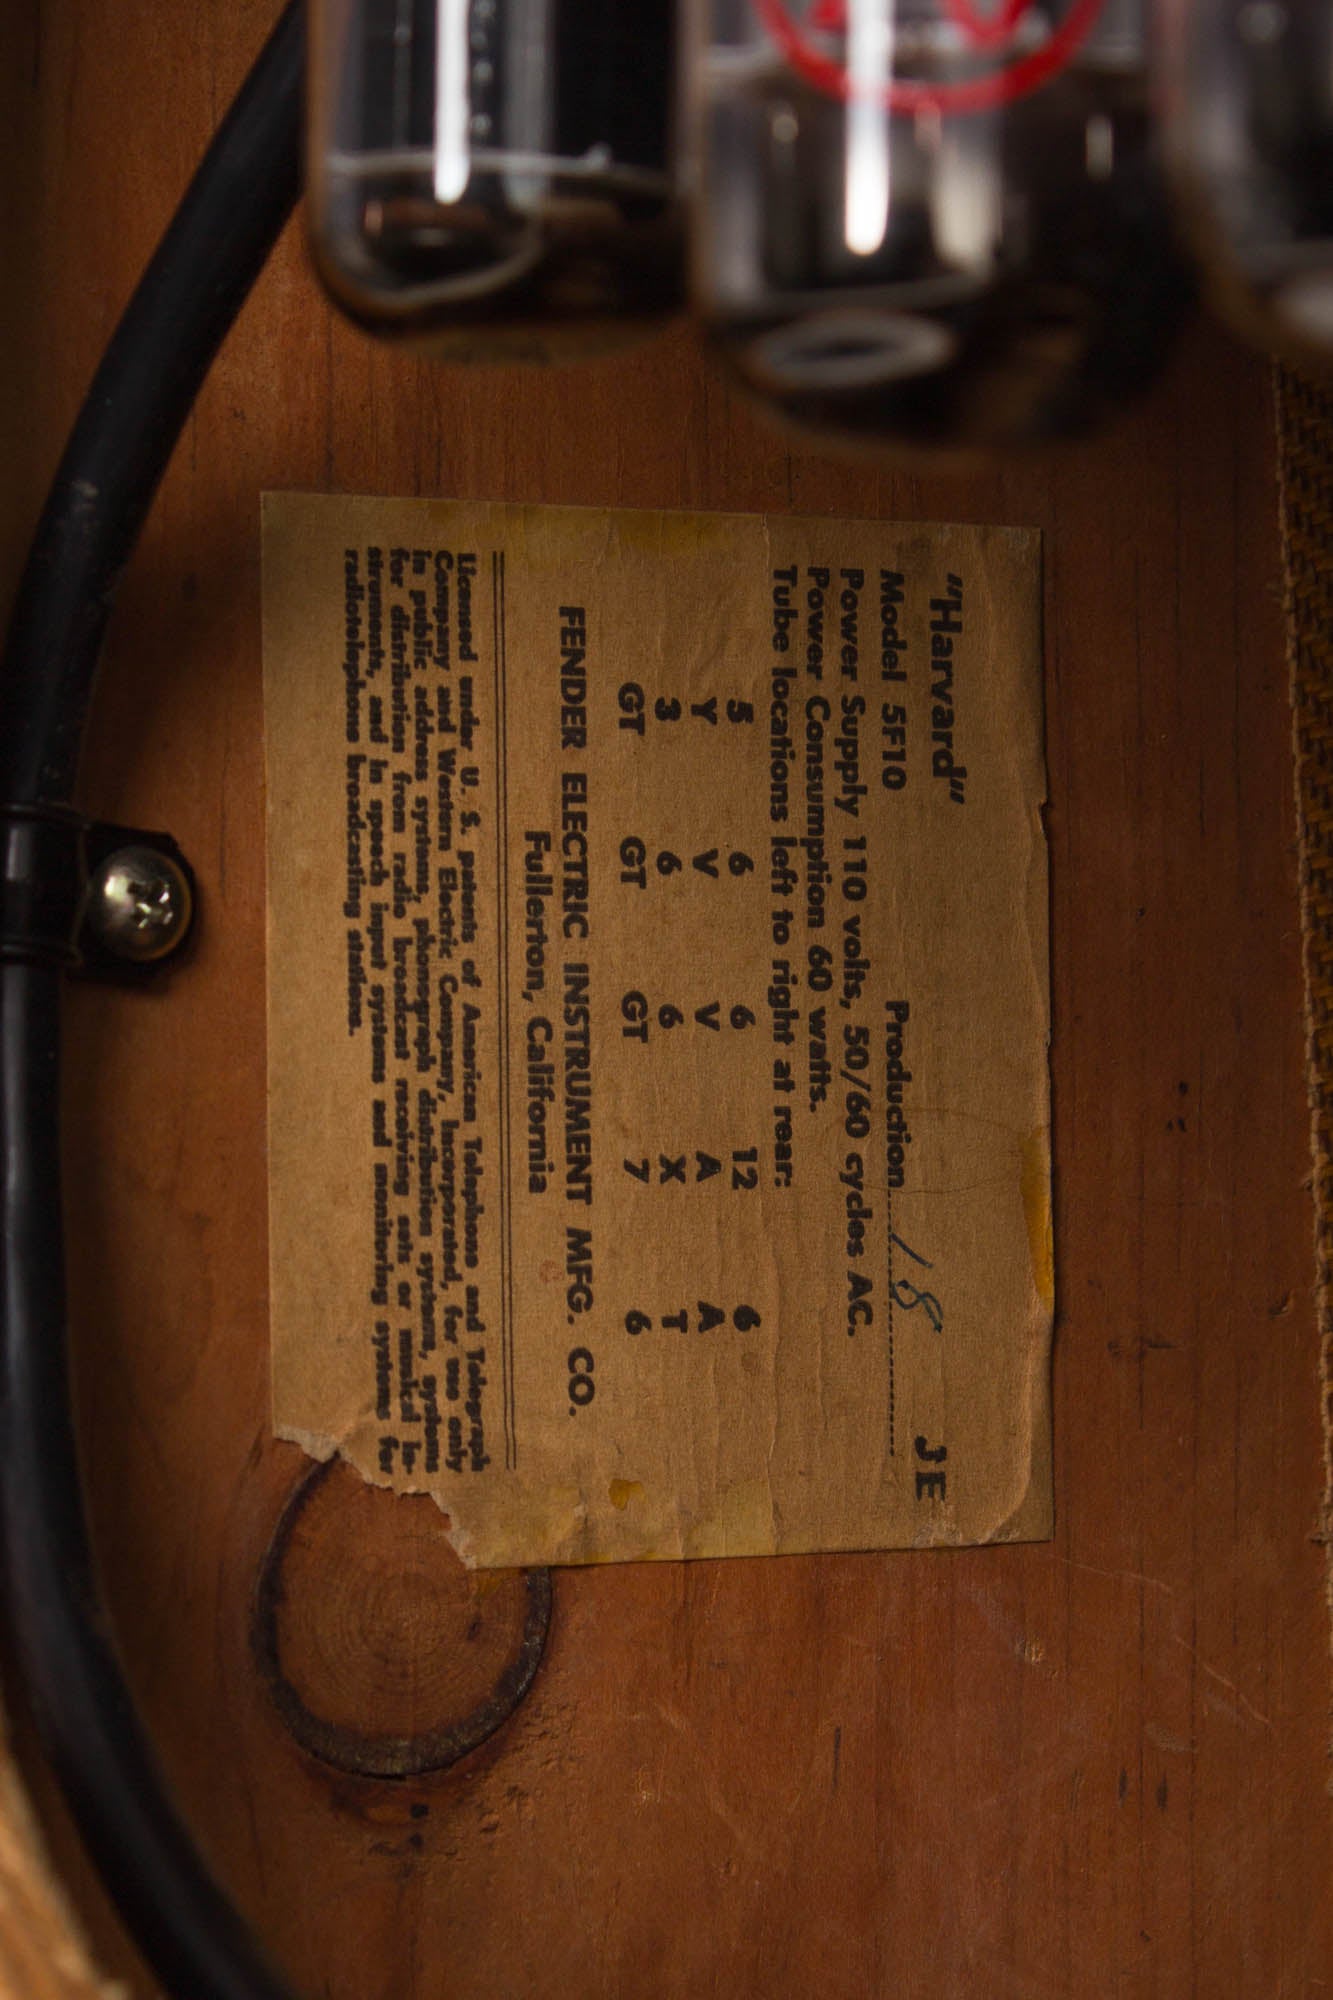 "Harvard"
JE
Model 5F10 Production 18
Power Supply 110 volts, 50/60 cycles AC.
Power Consumption 60 watts.
Tube locations left to right at rear:
5 6 6 12 6
Y V V A A
3 6 6 X T
GT GT GT 7 6
FENDER ELECTRIC INSTRUMENT MFG. CO.
Fullerton, California
Licensed under U. S. patents of American Telephone and Telegraph
Company and Western Electric Company, Incorporated, for use only
in public address systems, phonograph distribution systems, systems
for distribution from radio broadcast receiving sets or musical in-
struments, and in speech input systems and monitoring systems for
radiotelephone broadcasting stations.